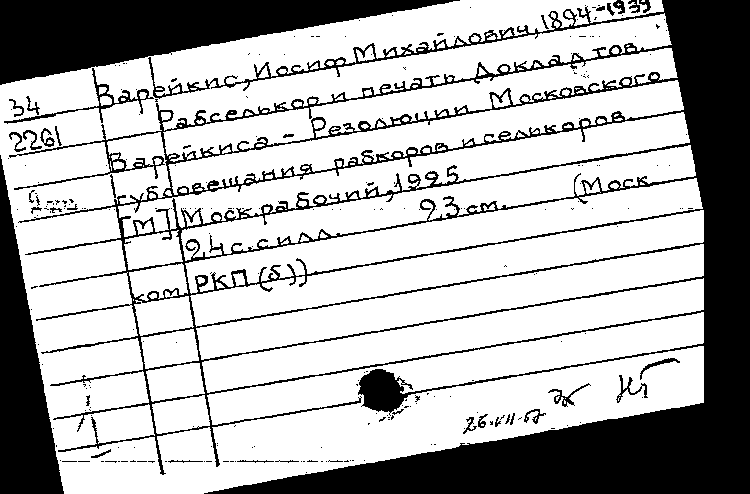 34
2261
Варейкис, Иосиф Михайлович, 1894-1939
Рабселькор и печать. Доклад тов.
Варейкиса. - Резолюции Московского
губсовещания рабкоров и селькоров.
[М], Моск. рабочий, 1925
24 с. с илл. 23 см. (Моск.
ком. РКП(б)).